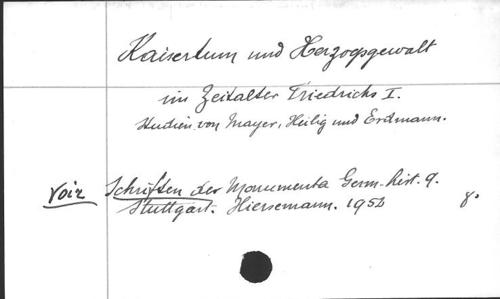 Kaisertum und Herzogsgewalt
im Zeitalter Friedrichs I.
Studien von Mayer, Heilig und Erdmann.
Voir Schriften der Monumenta Germ. hist. 9.
Stuttgart. Hiersemann. 1952 8°